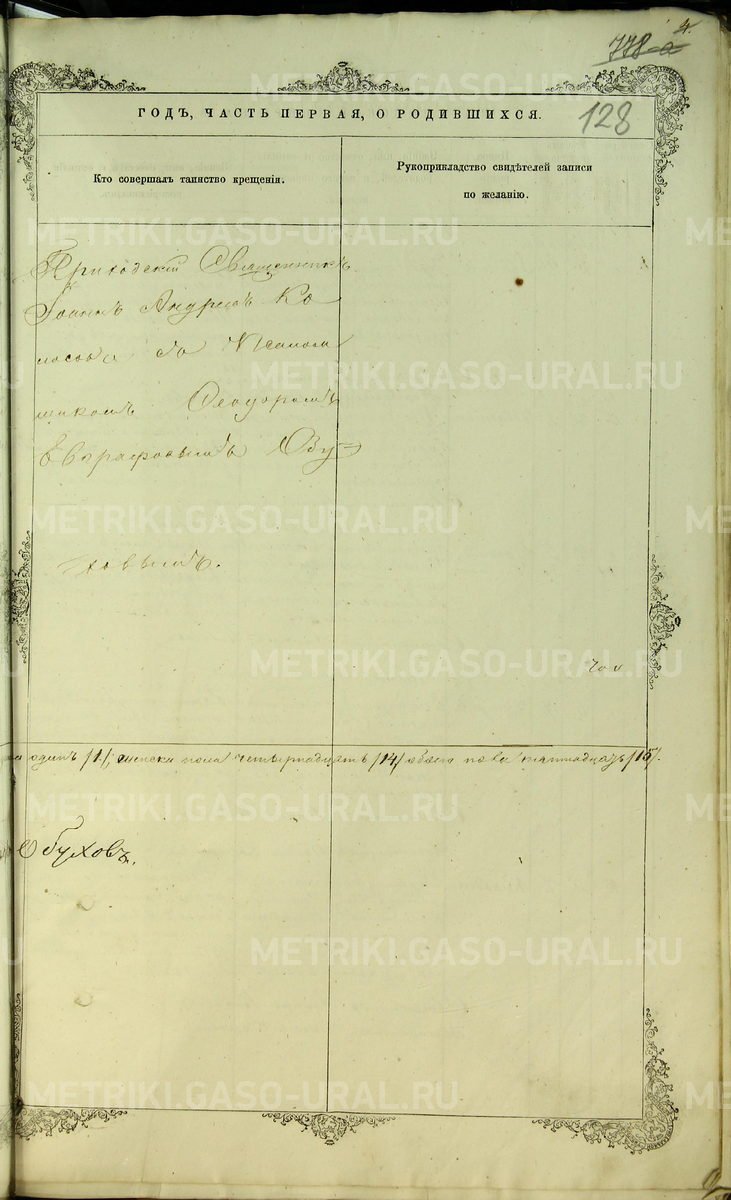 4.
778-а
128
ГОДЪ, ЧАСТЬ ПЕРВАЯ, О РОДИВШИХСЯ.
Кто совершалъ таинство крещенія.
Рукоприкладство свидѣтелей записи
по желанію.
Приходскій Священникъ
Іоаннъ Андреевъ Ко
лосовъ съ Псалом
щикомъ Ѳеодоромъ
Евграфовымъ Обу=
ховымъ.
одинъ /1/, женска пола четырнадцать /14/ обоего пола пятнадцать /15/.
Обуховъ.
METRIKI.GASO-URAL.RU